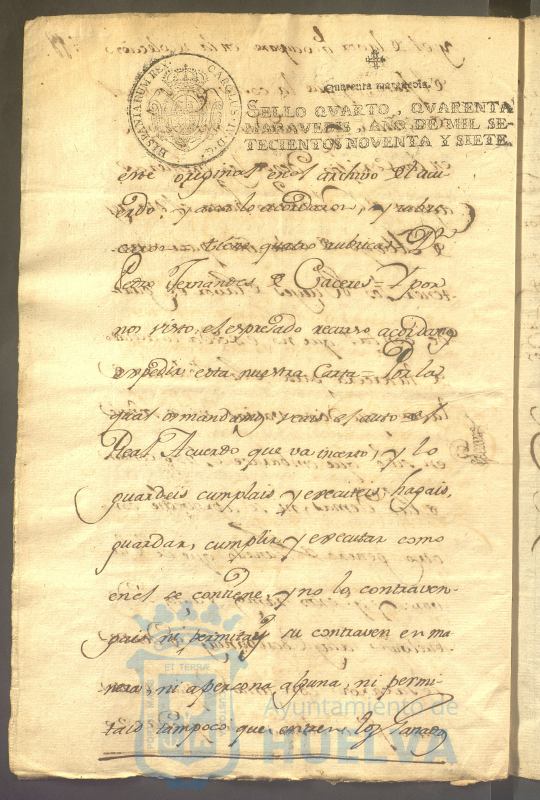 HISPANIARUM REX. CAROLUS IV D.G.
Quarenta maravedis.
SELLO QVARTO, QVARENTA
MARAVEDIS, AÑO DE MIL SE-
TECIENTOS NOVENTA Y SIETE.
original en el archivo del acu-
erdo, y assi lo acordaron, y rubri
caron = tiene quatro rubricas = Dn
Pedro Fernandes de Caceres = Y por
nos visto el espresado recurso acordamos
expedir esta nuestra Carta = Por la
qual os mandamos veais el auto del
Real Acuerdo que va incerto, y lo
guardeis cumplais y executeis, hagais,
guardar, cumplir y executar como
en el se contiene, y no lo contraven-
gais ni permitays su contraven en ma
nera, ni apersona alguna, ni permi-
tais tampoco que entren los Ganados
PORTUS MARIS ET TERRAE
Ayuntamiento de
HUELVA